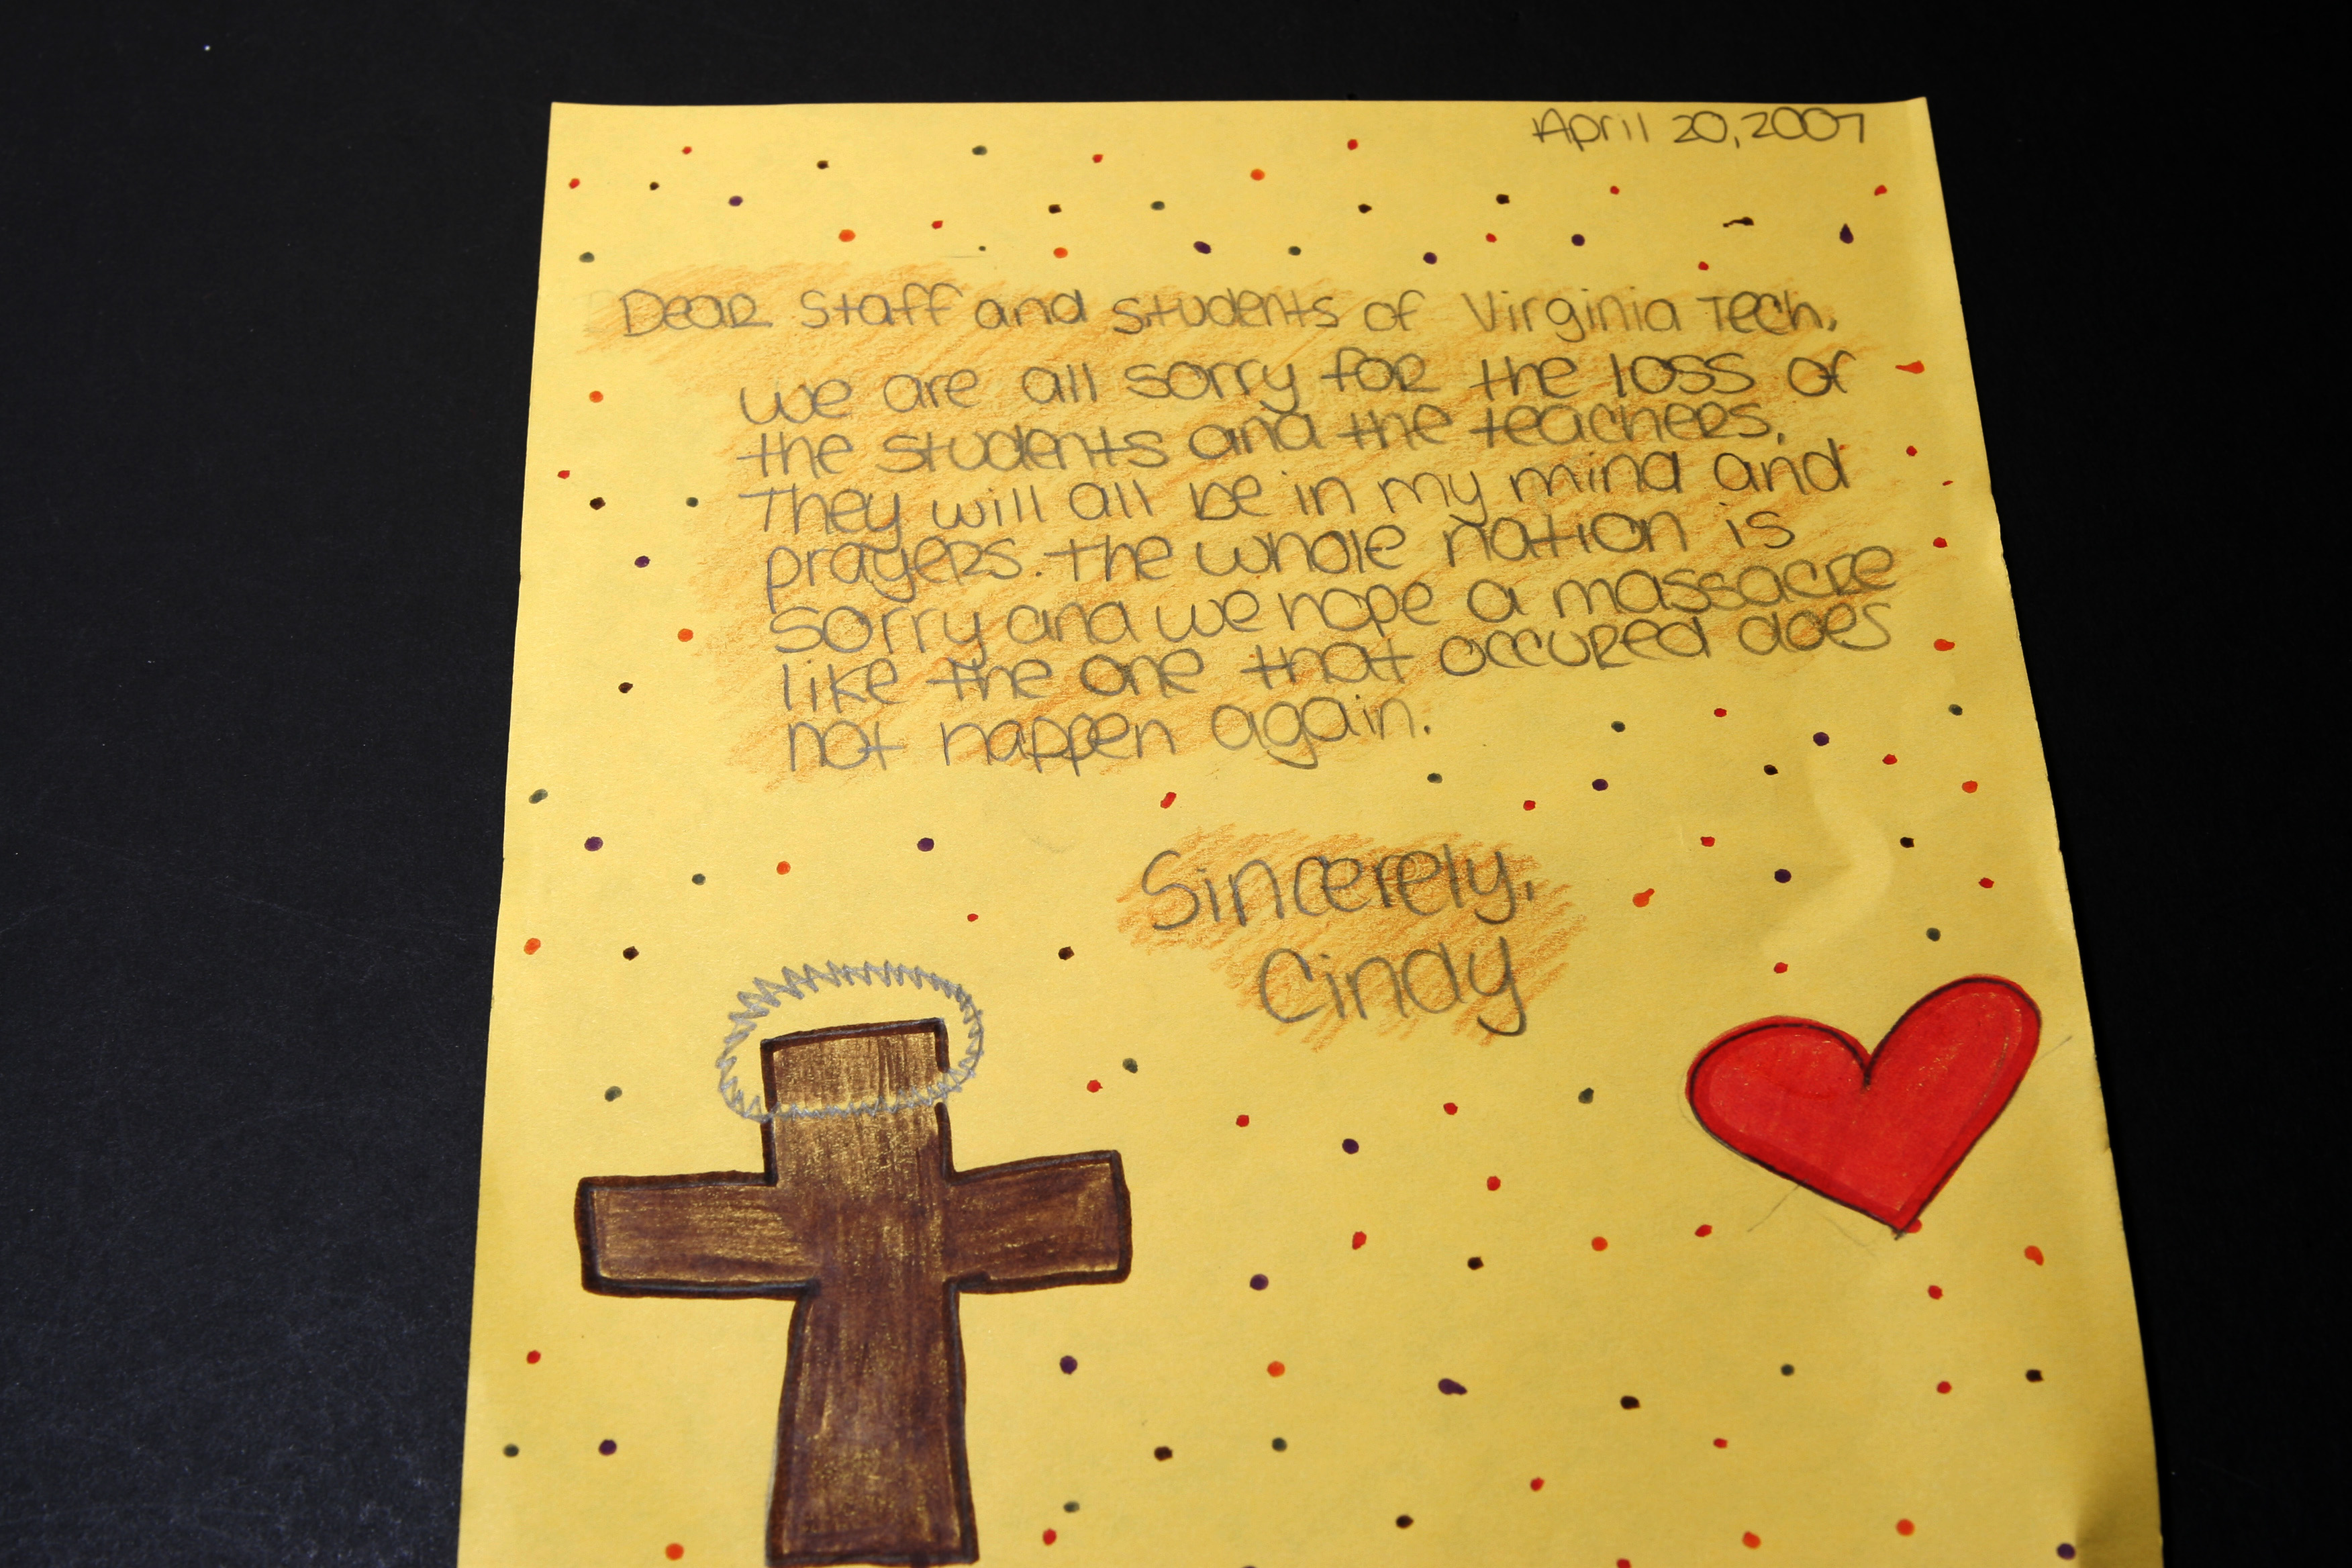 April 20, 2007
Dear Staff and students of Virginia Tech,
we are all sorry for the loss of
the students and the teachers.
They will all be in my mind and
prayers. the whole nation is
sorry and we hope a massacre
like the one that occured does
not happen again.
Sincerely,
Cindy